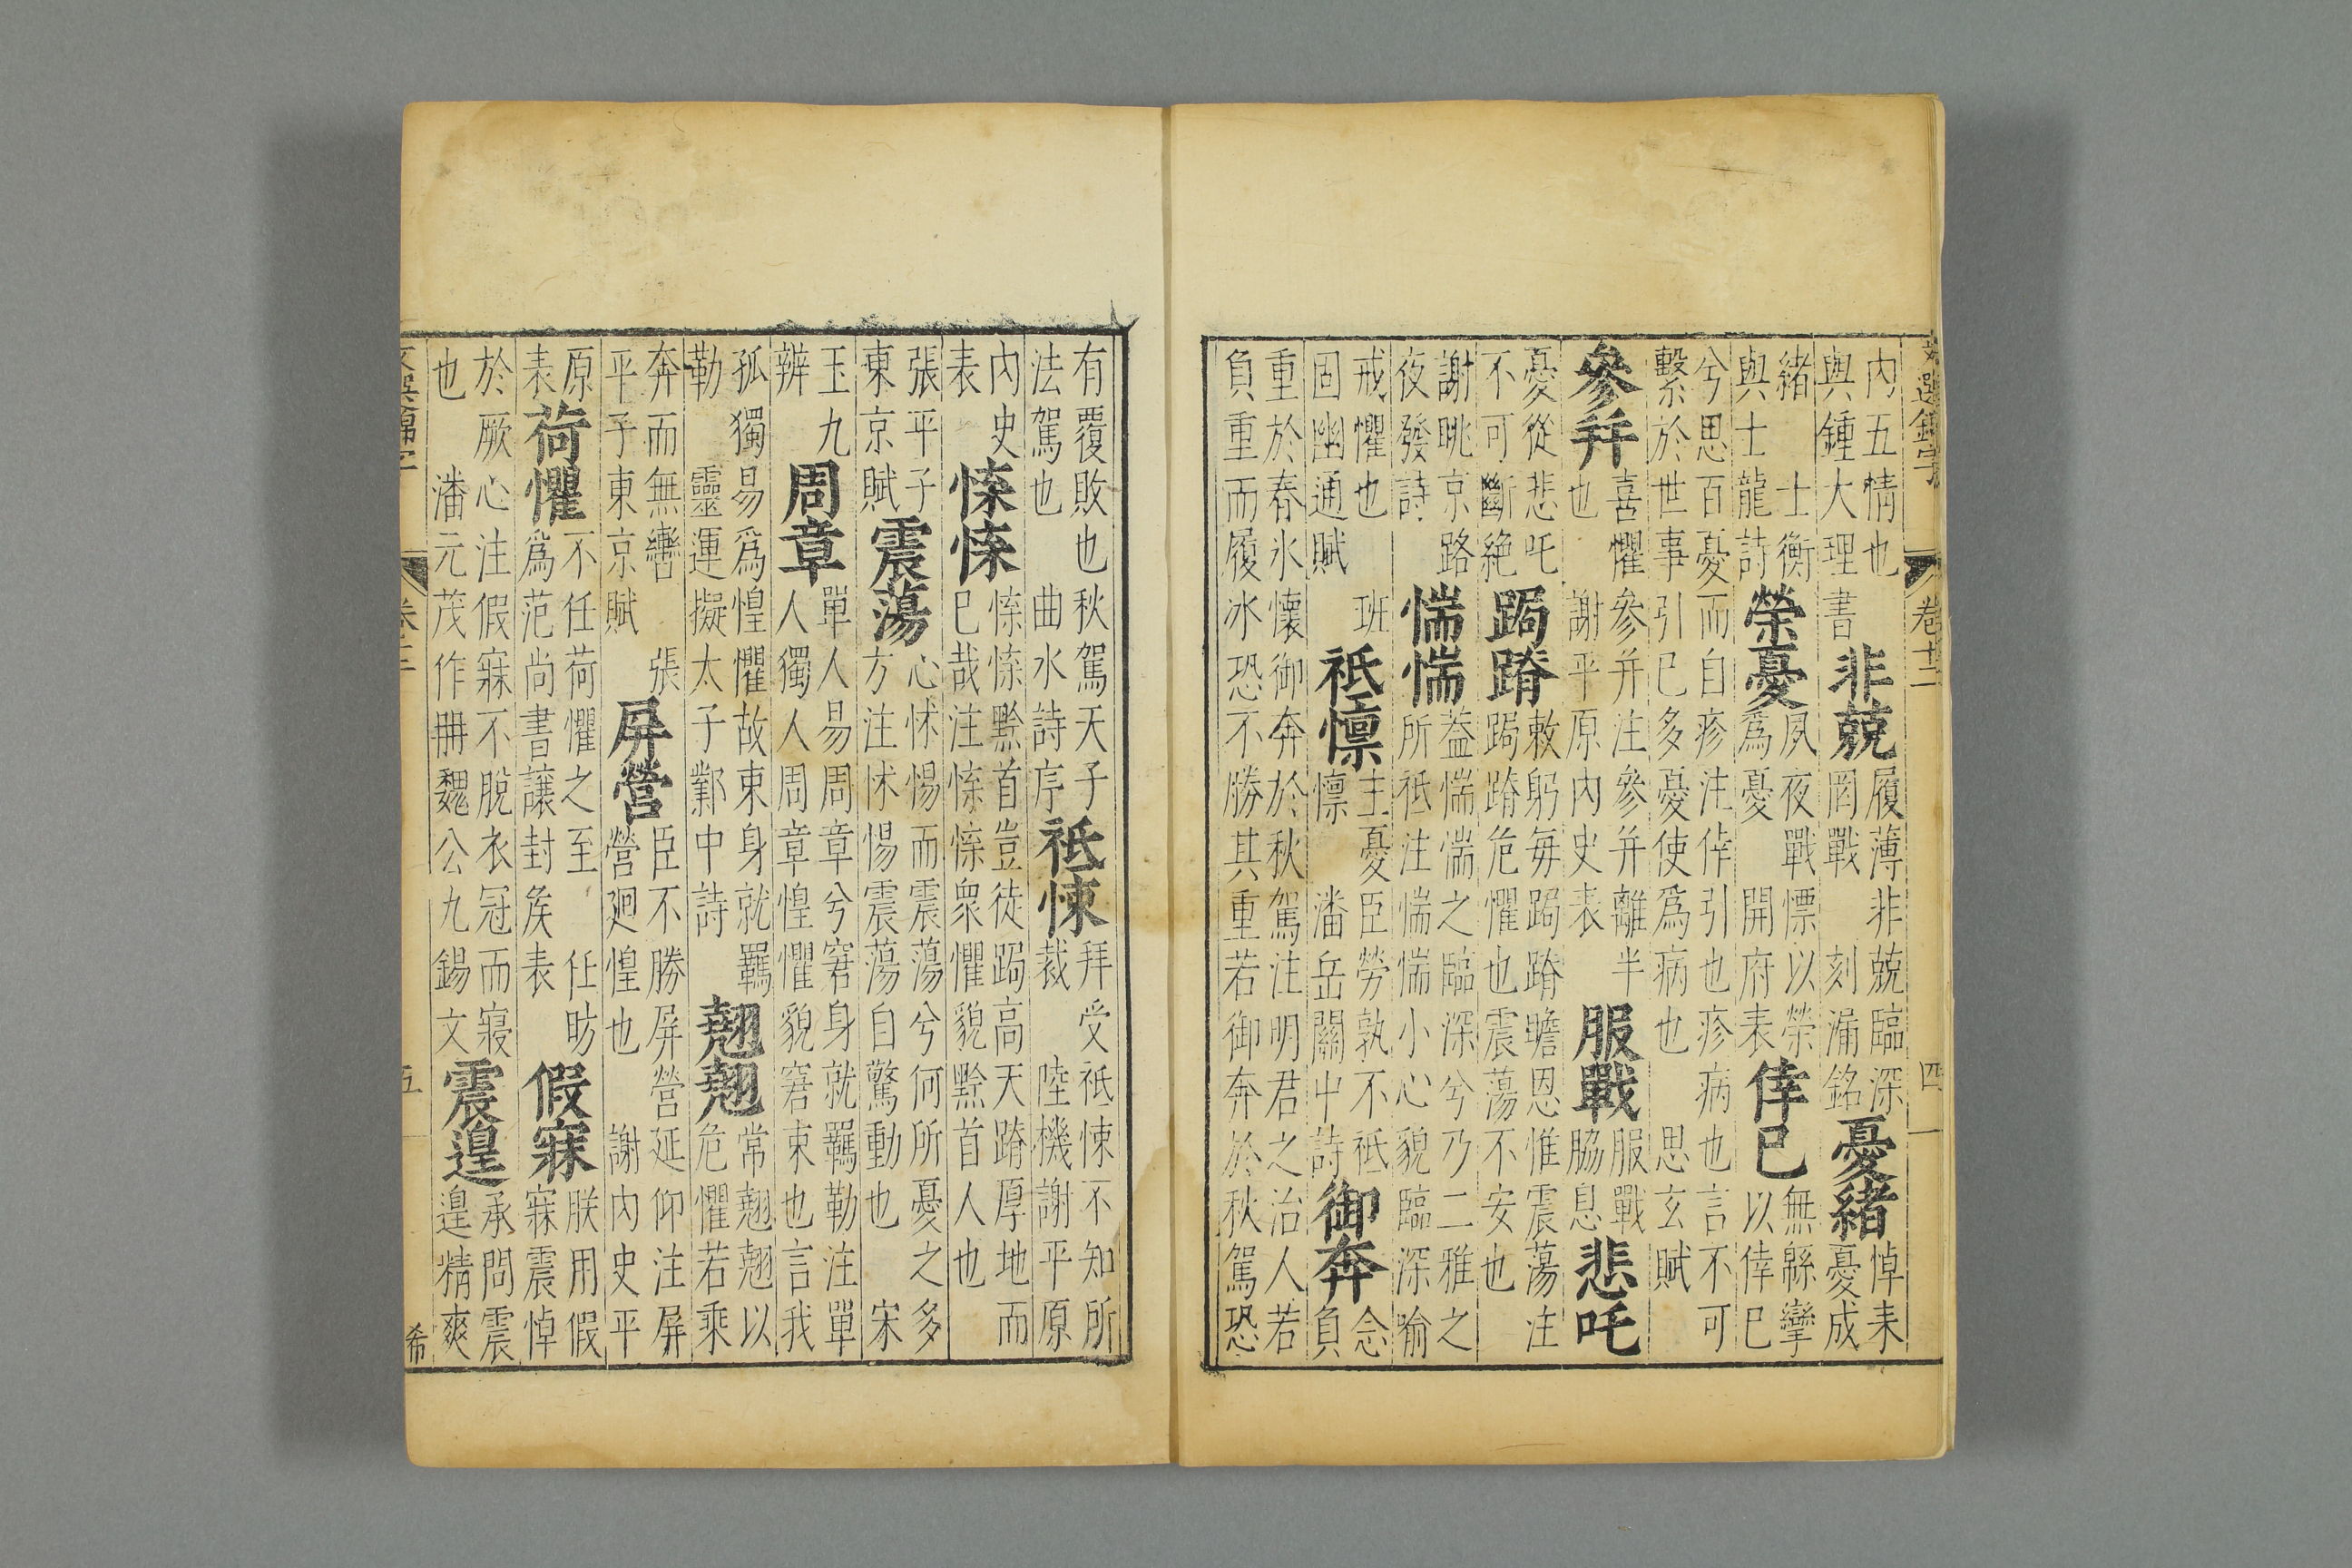 文選錦字 卷十二 四
內五情也
與鍾大理書
非兢
履薄非兢臨深
罔戰 刻漏銘
憂緒
悼耒
憂成
緒 士衡
與士龍詩
榮憂
夙夜戰慓以榮
為憂 開府表
倖已
無緜孿
以倖已
兮思百憂而自疹注倖引也疹病也言不可
繫於世事引已多憂使為病也 思玄賦
參并
喜懼參并注參并離半
也 謝平原內史表
服戰
服戰
脇息
悲吒
憂從悲吒
不可斷絶
跼蹐
敕躬每跼蹐瞻恩惟震蕩注
跼蹐危懼也震蕩不安也
謝眺京路
夜發詩
惴惴
益惴惴之臨深兮乃二雅之
所祗注惴惴小心貌臨深喻
戒懼也 班
固幽通賦
祗懍
主憂臣勞孰不祗
懍 潘岳關中詩
御奔
念
負
重於春氷懷御奔於秋駕注明君之治人若
負重而履冰恐不勝其重若御奔於秋駕恐
有覆敗也秋駕天子
法駕也 曲水詩序
祗悚
拜受祗悚不知所
裁 陸機謝平原
內史
表
惵惵
惵惵黔首豈徒跼高天蹐厚地而
已哉注惵惵衆懼貌黔首人也
張平子
東京賦
震蕩
心怵惕而震蕩兮何所憂之多
方注怵惕震蕩自驚動也 宋
玉九
辨
周章
單人易周章兮窘身就羈勒注單
人獨人周章惶懼貌窘束也言我
孤獨易為惶懼故束身就羈
勒 靈運擬太子鄴中詩
翹翹
常翹翹以
危懼若乘
奔而無轡 張
平子東京賦
屏營
臣不勝屏營延仰注屏
營廻惶也 謝內史平
原
表
荷懼
不任荷懼之至 任昉
為范尚書讓封矦表
假寐
朕用假
寐震悼
於厥心注假寐不脫衣冠而寢
也 潘元茂作冊魏公九錫文
震遑
承問震
遑精爽
五 希